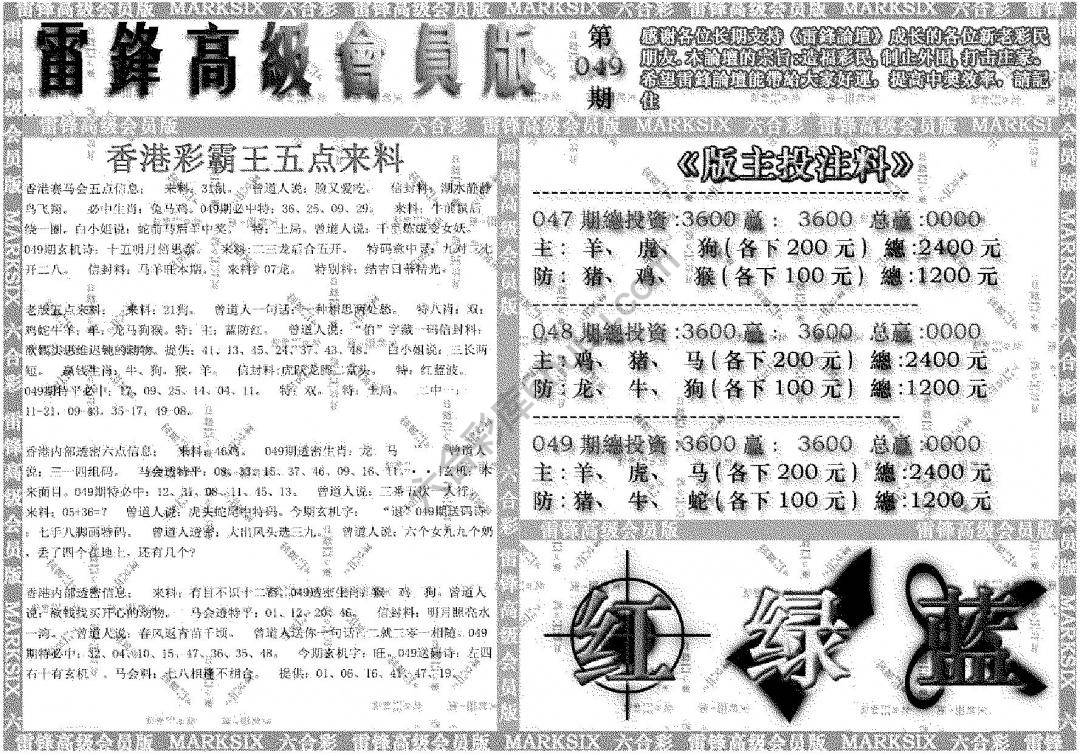 雷锋高级会员版 MARKSIX 六合彩 雷锋高级会员版 MARKSIX 六合彩
雷鋒高級會員版
第
049
期
感謝各位长期支持《雷鋒論壇》成长的各位新老彩民
朋友.本論壇的宗旨:造福彩民,制止外围,打击庄家.
希望雷鋒論壇能帶給大家好運，提高中獎效率，請記
住
雷锋高级会员版 六合彩 雷锋高级会员版 MARKSIX 雷锋高级会员版 MARKSIX
香港彩霸王五点来料
香港赛马会五点信息： 来料：31鼠。 曾道人说： 信封料：湖水静静
鸟飞翔。 必中生肖：兔马鸡。049期必中特：36、25、09、29。 来料：牛前鼠后
绕一圈，白小姐说：蛇前马后羊中奖。 特：土局。 曾道人说：
049期玄机诗：十五明月倍思亲。 来料：二三龙后合五开。 特码章中录：九对三七
开二八。 信封料：马羊旺本期。 来料：07龙。 特别料：
老版五点来料： 来料：21狗。 曾道人一句话：一种相思两处愁。 特八肖：双：
鸡蛇牛羊；单：龙马狗猴。特：主：蓝防红。 曾道人说：“伯”字藏一码信封料：
提供：41、13、45、24、37、43、48。 白小姐说：三长两
短。 赢钱生肖：牛、狗、猴、羊。 信封料：虎跃龙腾 特：红蓝波。
049期特平必中：17、09、25、14、04、11。 特：双。 特：土局。 二中一：
11-21、09-43、35-17、49-08。
香港内部透密六点信息： 来料：46鸡。 049期透密生肖：龙、马 曾道人
说：三一四组码。 马会透特平：08、33、15、37、46、09、16、11 玄机：本
来面目。049期特必中：12、31、08、11、45、13。 曾道人说：三番五次一人行。
来料：05+36=7 曾道人说：虎头蛇尾中特码。今期玄机字：“退”049期送码诗
：七手八脚面特码。 曾道人透密：大出风头选三九。 曾道人说：六个女九九个奶
，丢了四个在地上，还有几个?
香港内部透密信息： 来料：有目不识十二春。049透密生肖：猴 鸡 狗。曾道人
说：做钱找买开心的动物。 马会透特平：01、12、20、46。 信封料：明月照亮水
一湾。 曾道人说：春风返青苗千顷。 曾道人送你一句话：二就三零一相随。049
期特必中：32、04、10、15、47、36、35、48。 今期玄机字：旺。049送码诗：左四
右十有玄机。马会料：七八相逢不相合。 提供：01、06、16、41、47、19。
《版主投注料》
047 期總投資:3600 赢: 3600 总赢:0000
主:羊、虎、狗(各下200元) 總:2400元
防:猪、鸡、猴(各下100元) 總:1200元
048 期總投資:3600 赢: 3600 总赢:0000
主:鸡、猪、马(各下200元) 總:2400元
防:龙、牛、狗(各下100元) 總:1200元
049 期總投資:3600 赢: 3600 总赢:0000
主:羊、虎、马(各下200元) 總:2400元
防:猪、牛、蛇(各下100元) 總:1200元
雷锋高级会员版 雷锋高级会员版
红 绿 蓝
雷锋高级会员版 MARKSIX 六合彩 雷锋高级会员版 MARKSIX 六合彩 雷锋高级会员版